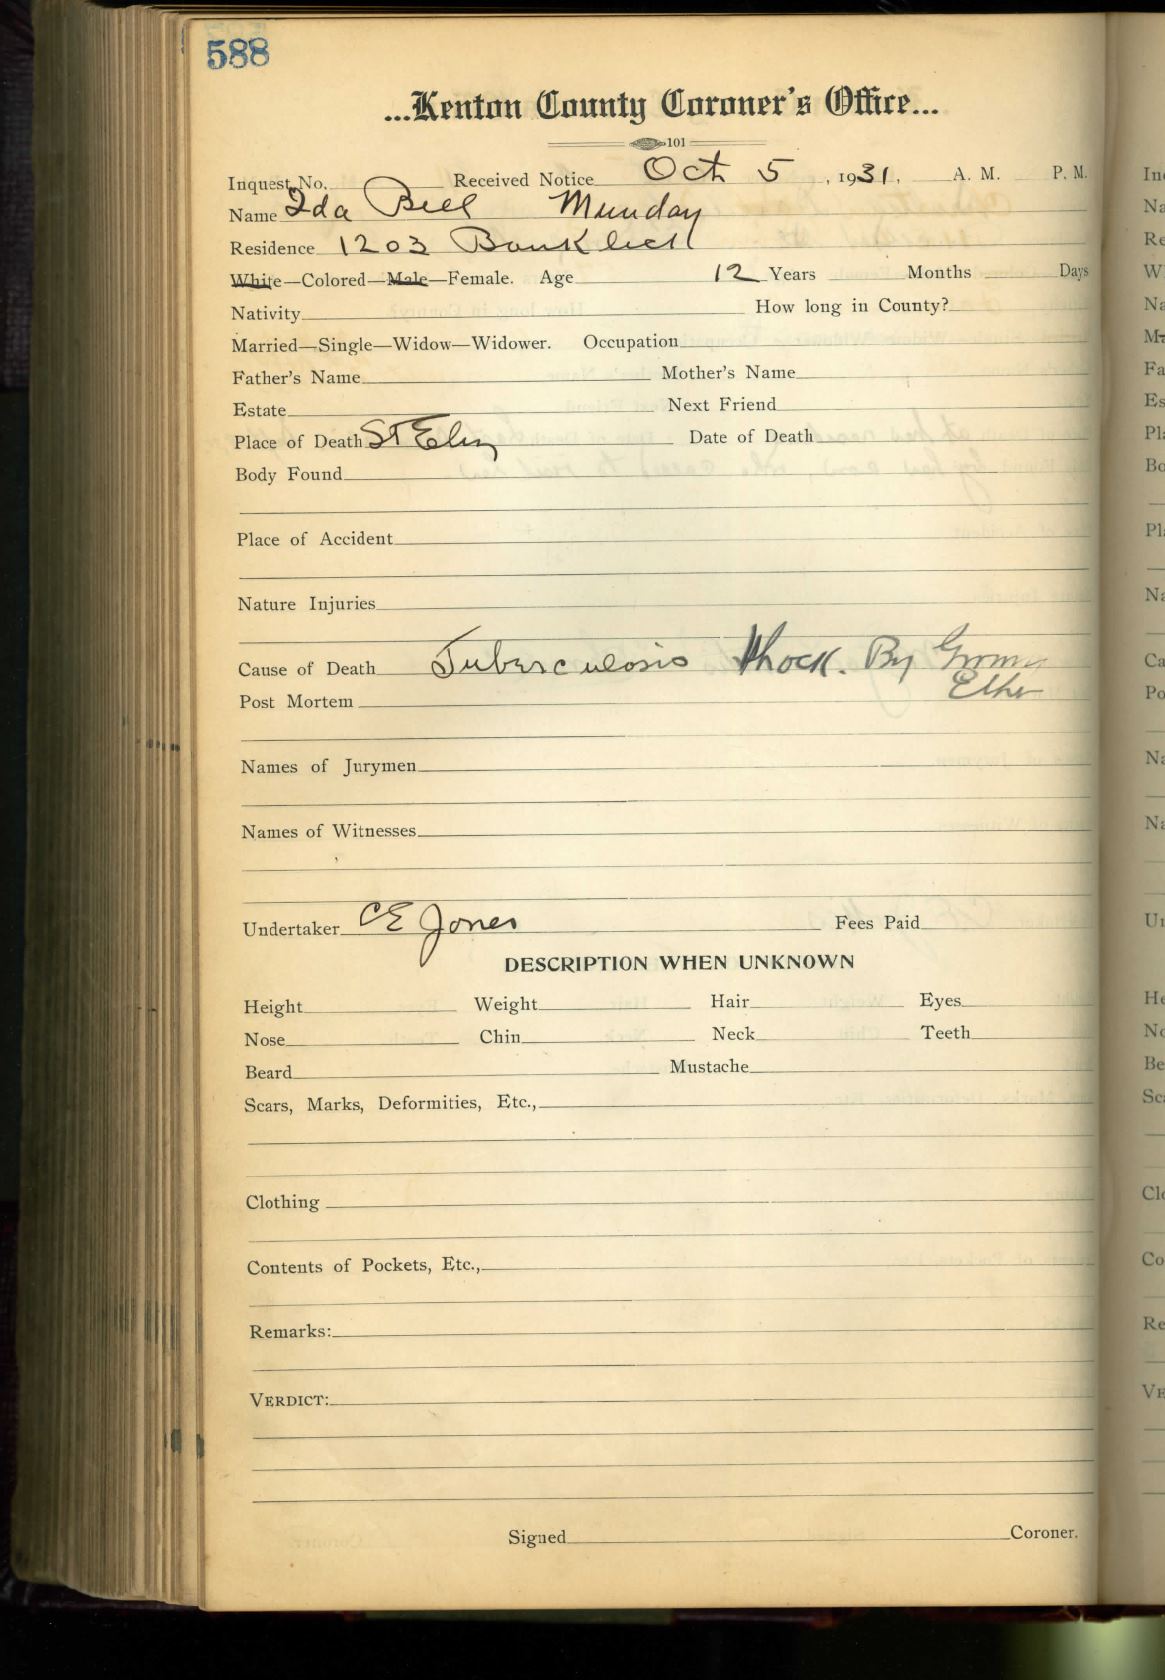 588
...Kenton County Coroner's Office...
101
Inquest No. Received Notice Oct 5, 1931, A. M. P. M.
Name Ida Bell Munday
Residence 1203 Banklick
White—Colored—Male—Female. Age 12 Years Months Days
Nativity How long in County?
Married—Single—Widow—Widower. Occupation
Father's Name Mother's Name
Estate Next Friend
Place of Death St Eliz Date of Death
Body Found
Place of Accident
Nature Injuries
Cause of Death Tuberculosis Shock. By
Post Mortem
Names of Jurymen
Names of Witnesses
Undertaker CE Jones Fees Paid
DESCRIPTION WHEN UNKNOWN
Height Weight Hair Eyes
Nose Chin Neck Teeth
Beard Mustache
Scars, Marks, Deformities, Etc.,
Clothing
Contents of Pockets, Etc.,
Remarks:
VERDICT:
Signed Coroner.